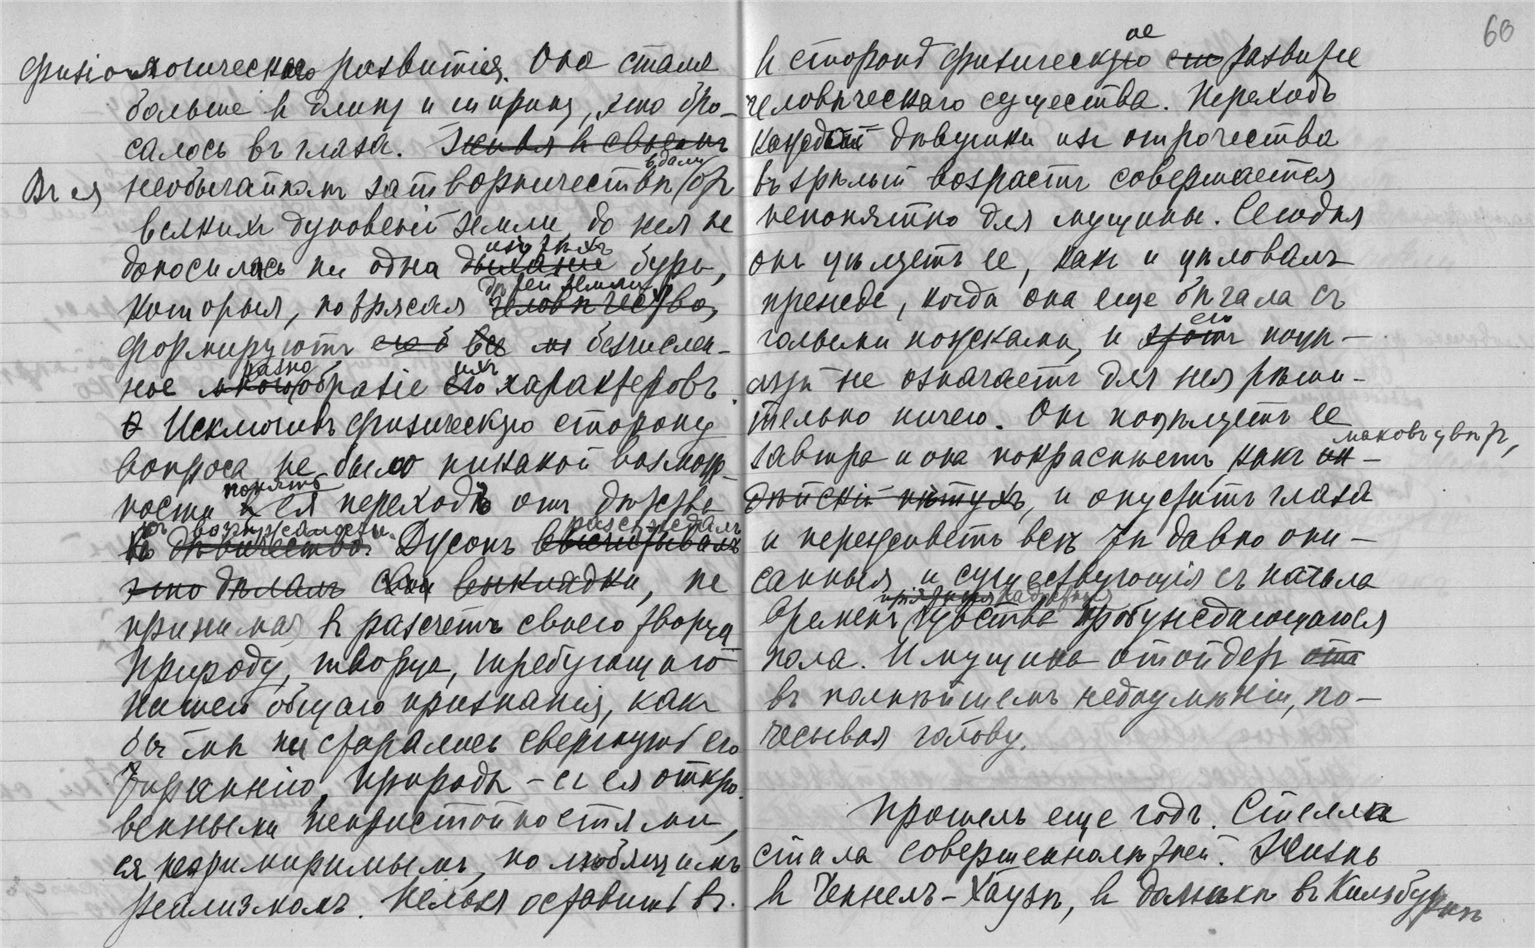 физіологическаго развитія. Она стала
больше в длину и ширину, это бро-
салось въ глаза. Живя в своемъ
Въ ея необычайномъ затворничествѣ, вдали от
всякихъ дуновеній земли, до нея не
доносилась ни одна изъ тѣхъ дыханіе бурь,
которыя, потрясая дѣтей земли, человѣчество,
формируютъ его б все безчислен-
ное разно многообразіе ихъ его характеровъ.
Исключивъ физическую сторону
вопроса не было никакой возмож-
ности понять ея переходъ отъ дѣтства
къ возмужалости. къ дѣвичеству. Дусонъ разсуждалъ высчитывалъ
это дѣлалъ свои выкладки, не
принимая в разсчетъ своего творца
природу, творца, требующаго
нашего общаго признанія, какъ
бы мы ни старались свергнуть его
тиранію, природы – съ ея откро-
венными непристойностями,
ея непримиримымъ, но любящимъ
реализмомъ. Нельзя оставить въ
60
в сторонѣ физическую ое его развитіе
человѣческаго существа. Переходъ
каждой дѣвушки изъ отрочества
въ зрѣлый возрастъ совершается
непонятно для мущины. Сегодня
онъ цѣлуетъ ее, какъ и цѣловалъ
прежде, когда она еще бѣгала съ
голыми ножками, и его этотъ поцѣ-
луй не означаетъ для нея рѣши-
тельно ничего. Онъ поцѣлуетъ ее
завтра и она покраснѣетъ какъ маковъ цвѣтъ, ин-
дѣйскій пѣтухъ, и опуститъ глаза
и перечувствуетъ всѣ тѣ давно опи-
санныя и существующія съ начала
временъ чувства пробуждающагося
пола. И мущина отойдетъ
въ полнѣйшемъ недоумѣніи, по-
чесывая голову.
Прошелъ еще годъ. Стелла
стала совершеннолѣтней. Жизнь
в Ченнелъ-Хаузѣ, в домикѣ въ Кильбурнѣ